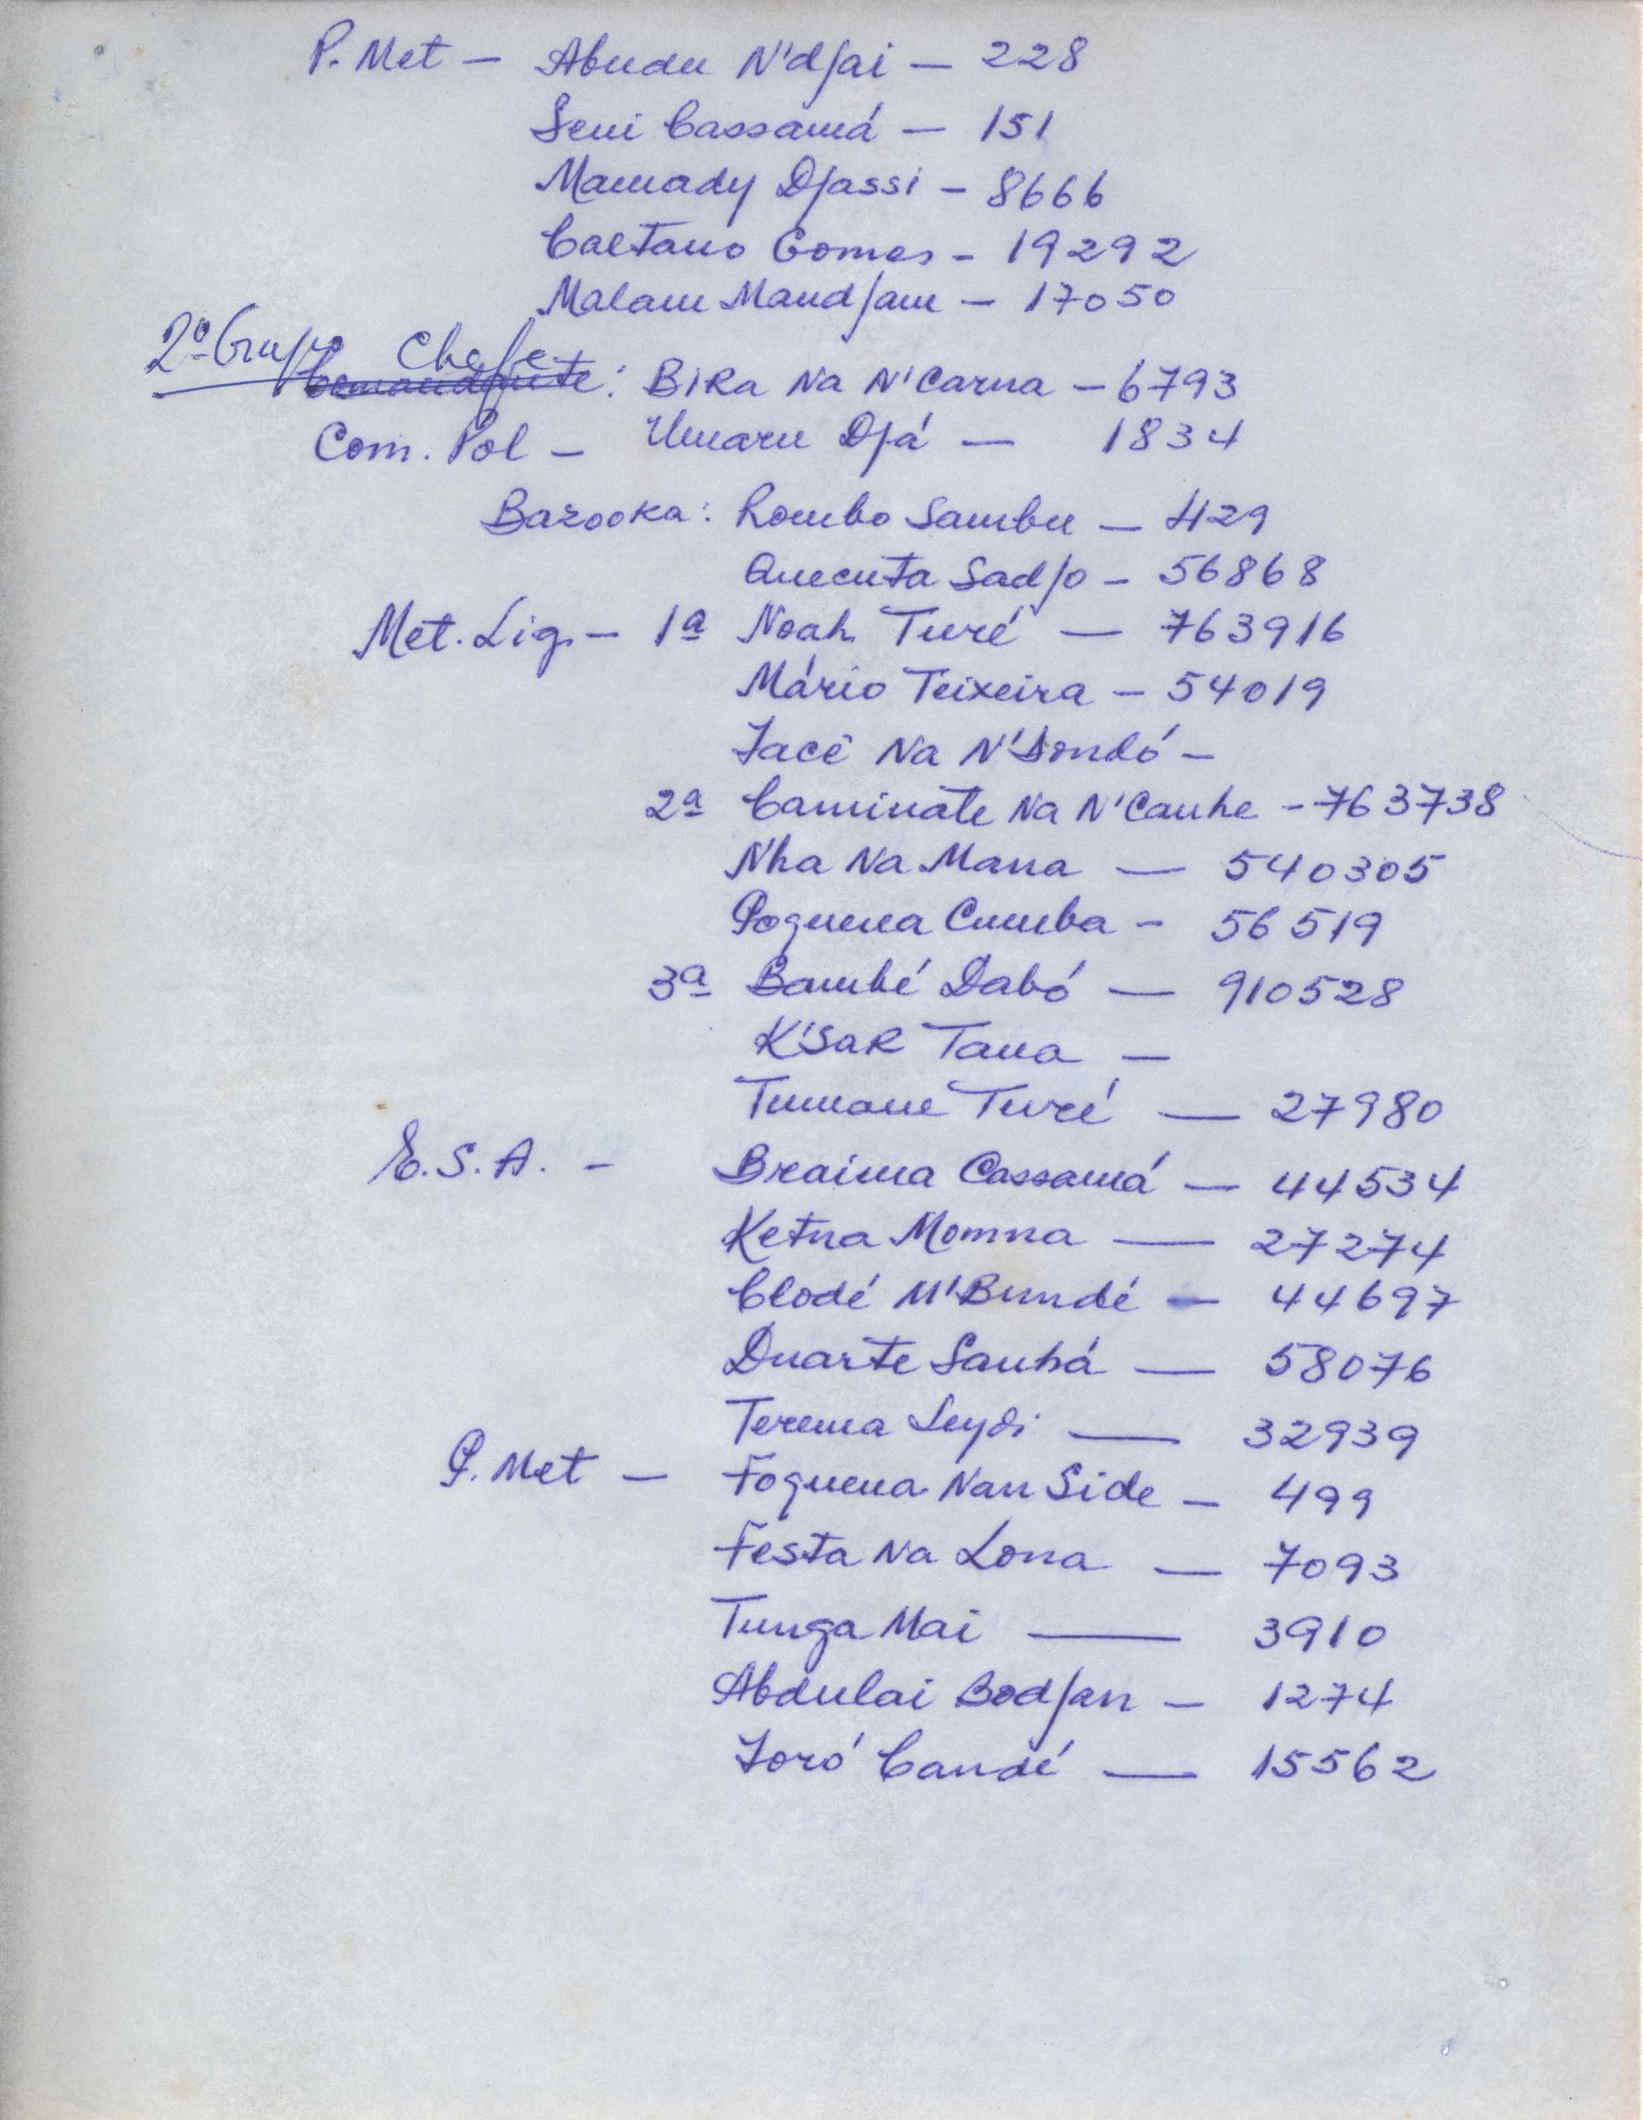 P. Met — Abudu N'djai — 228
Seni Cassamá — 151
Mamady Djassi - 8666
Caetano Gomes - 19292
Malam Mandjam — 17050
2º Grupo Chefe
Comandante: BiRa Na N'Carna — 6793
Com. Pol — Umaru Djá — 1834
Bazooka: Rombo Sambu — 429
Quecuta Sadjo - 56868
Met. Lig. — 1ª Noah Turé — 763916
Mário Teixeira — 54019
Jacê Na N'Dondó —
2ª Caminate Na N'Canhe - 763738
N'ha Na Mana — 540305
Poguena Cumba - 56519
3ª Bambé Dabó — 910528
K'SaR Tana —
Tumane Turé — 27980
E.S.A. — Braima Cassamá — 44534
Ketna Momna — 27274
Clodé M'Bundé — 44697
Duarte Sanhá — 58076
Terema Seydi — 32939
P. Met — Foguena Nan Side — 499
Festa Na Lona — 7093
Tunga Mai — 3910
Abdulai Bodjan — 1274
Joró Candé — 15562